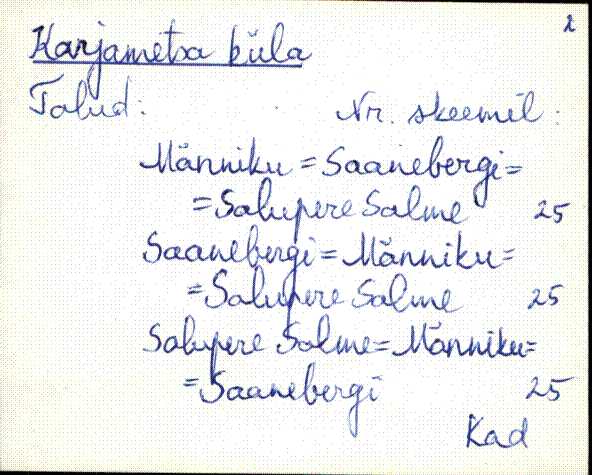 2
Karjametsa küla
Talud: Nr. skeemil:
Männiku = Saanebergi =
= Salupere Salme 25
Saanebergi = Männiku =
= Salupere Salme 25
Salupere Salme = Männiku =
= Saanebergi 25
Kad